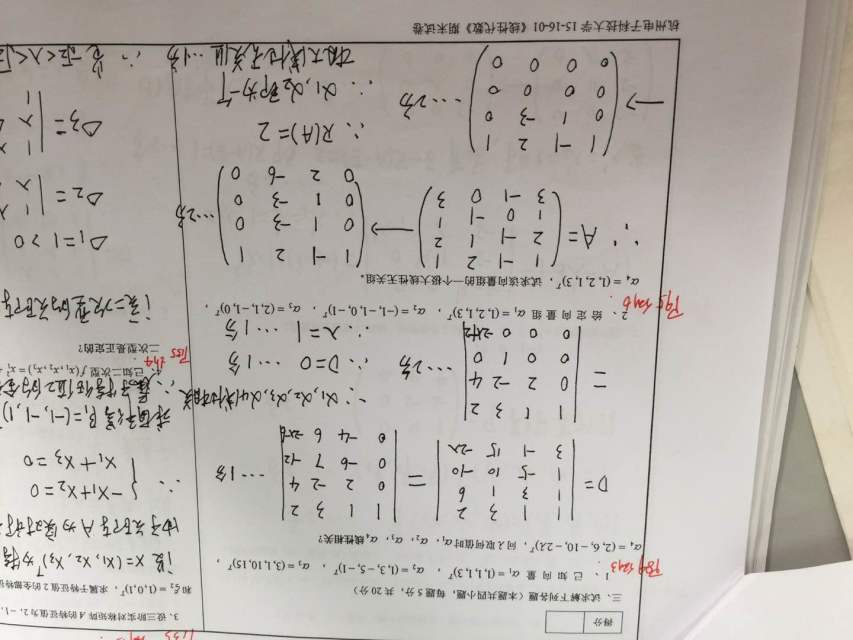 得分
三、试求解下列各题（本题共四小题，每题 5 分，共 20 分）
P84 例3.
1、已知向量 α₁=(1,1,1,3)ᵀ，α₂=(1,3,-5,-1)ᵀ，α₃=(3,1,10,15)ᵀ，
α₄=(2,6,-10,-2λ)ᵀ，问λ取何值时α₁，α₂，α₃，α₄线性相关？
D= | 1 1 3 2 | = | 1 1 3 2 |
| 1 3 1 6 | | 0 2 -2 4 |
| 1 -5 10 -10 | | 0 -6 7 -12 | …1分
| 3 -1 15 -2λ | | 0 -4 6 -2λ-6 |
= | 1 1 3 2 |
| 0 2 -2 4 |
| 0 0 1 0 | …2分
| 0 0 0 -2λ+2 |
∵ α₁,α₂,α₃,α₄线性相关
∴ D=0 …1分
∴ λ=1 …1分
P95 例6
2、给定向量组 α₁=(1,2,1,3)ᵀ，α₂=(-1,-1,0,-1)ᵀ，α₃=(2,1,-1,0)ᵀ，
α₄=(1,2,1,3)ᵀ，试求该向量组的一个极大线性无关组。
∵ A= ( 1 -1 2 1 ) → ( 1 -1 2 1 )
( 2 -1 1 2 ) ( 0 1 -3 0 )
( 1 0 -1 1 ) ( 0 1 -3 0 ) …2分
( 3 -1 0 3 ) ( 0 2 -6 0 )
→ ( 1 -1 2 1 )
( 0 1 -3 0 )
( 0 0 0 0 ) …2分
( 0 0 0 0 )
∴ R(A)=2
∴ α₁,α₂即为一个
极大线性无关组 …1分
杭州电子科技大学 15-16-01《线性代数》期末试卷
3、设三阶实对称矩阵 A 的特征值为 2，-1，
和 ξ₂=(1,0,1)ᵀ，求属于特征值 2 的全部特征
设 X=(X₁,X₂,X₃)ᵀ为特
由于矩阵A为实对称
∴ { -X₁+X₂=0
X₁+X₃=0
求解得 β₁=(-1,-1,1)
∴属于特征值2的全
P155 例4
4、已知二次型 f(x₁,x₂,x₃)=x₁²
二次型是正定的？
该二次型的矩阵
Δ₁=1>0
Δ₂= | 1 λ
| λ
Δ₃= | 1 λ
| λ
| 1
∴ 当 -√2<λ<√2